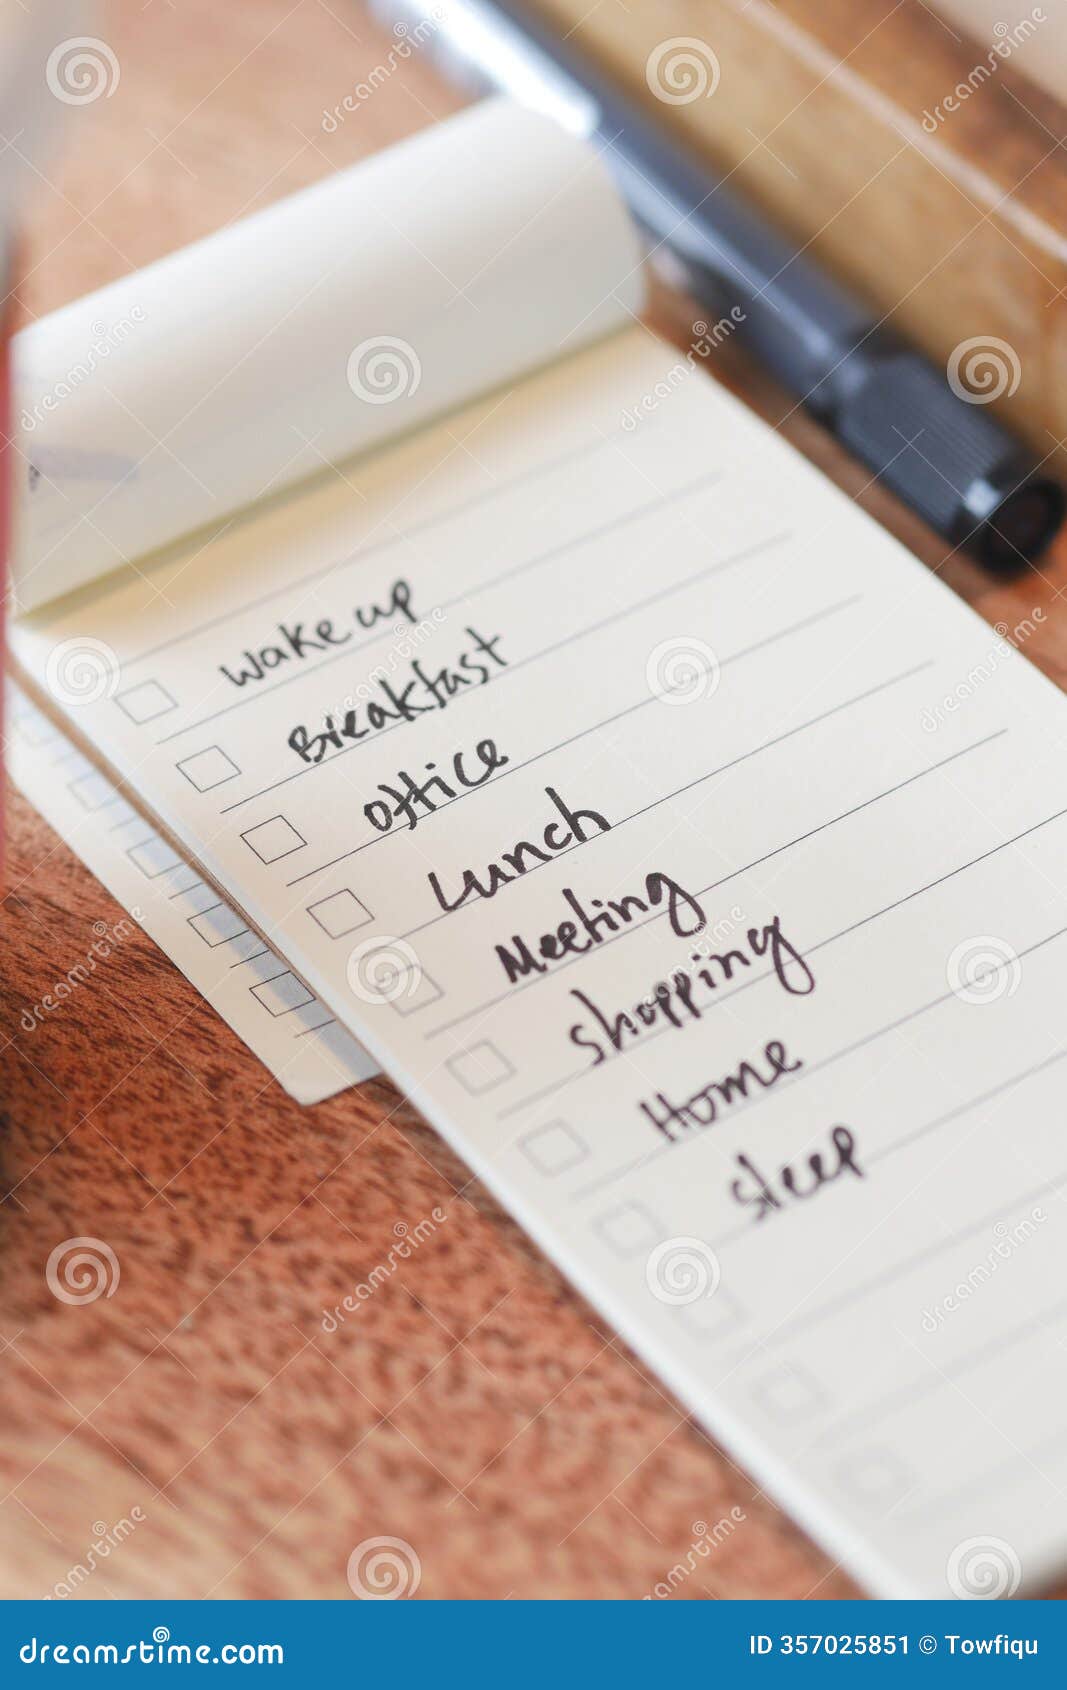 wake up
Breakfast
office
Lunch
Meeting
shopping
Home
sleep
dreamstime.com
ID 357025851 © Towfiqu